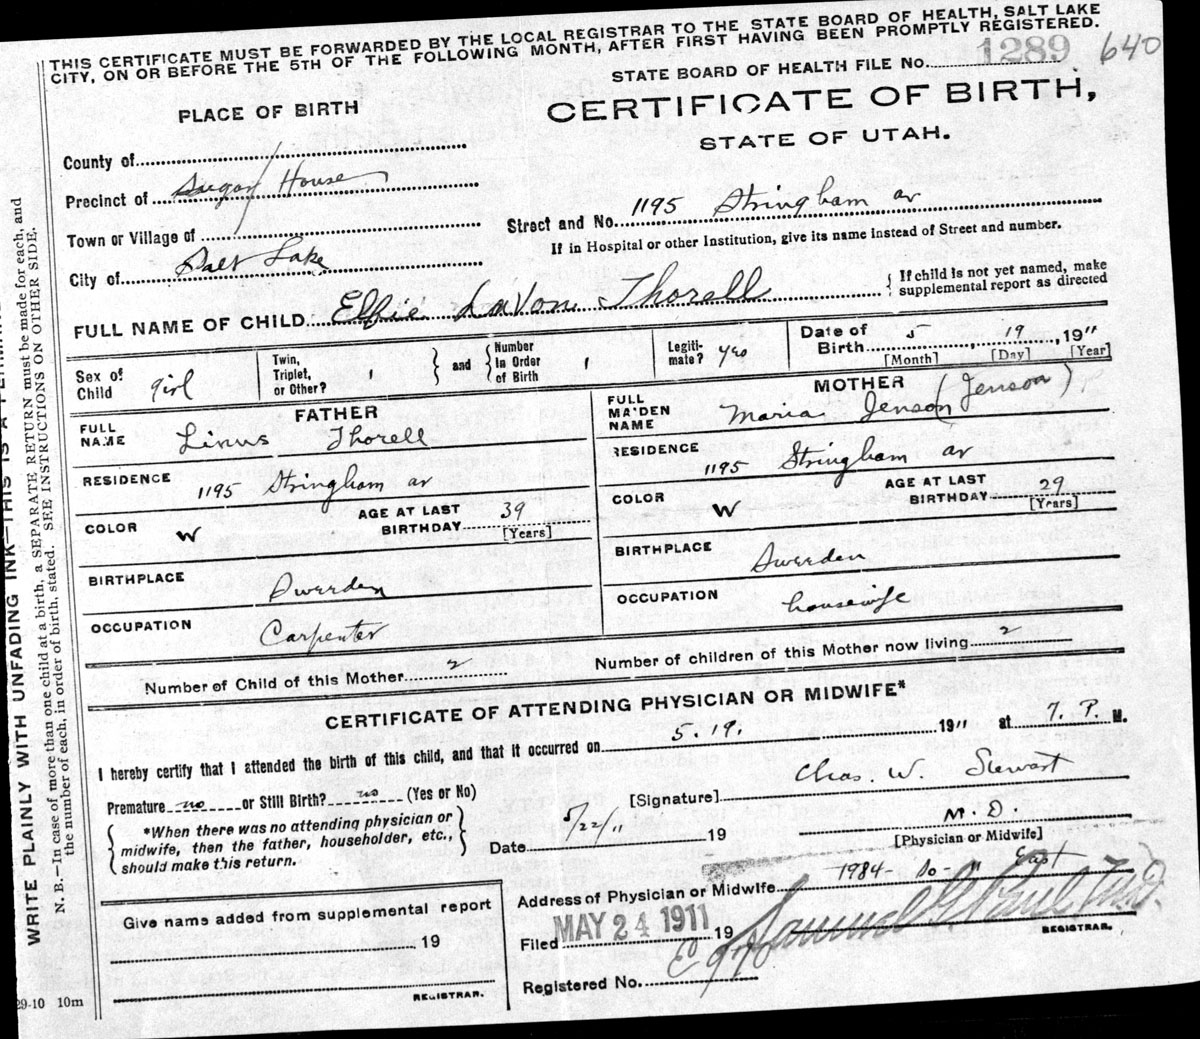 THIS CERTIFICATE MUST BE FORWARDED BY THE LOCAL REGISTRAR TO THE STATE BOARD OF HEALTH, SALT LAKE
CITY, ON OR BEFORE THE 5TH OF THE FOLLOWING MONTH, AFTER FIRST HAVING BEEN PROMPTLY REGISTERED.
STATE BOARD OF HEALTH FILE No. 1289 640
PLACE OF BIRTH
CERTIFICATE OF BIRTH,
STATE OF UTAH.
County of
Precinct of Sugar House
Town or Village of
Street and No. 1195 Stringham av
If in Hospital or other Institution, give its name instead of Street and number.
City of Salt Lake
FULL NAME OF CHILD Elfie LaVon Thorell
{ If child is not yet named, make
supplemental report as directed
Sex of Child girl
Twin, Triplet, or Other? 1 } and { Number in Order of Birth 1
Legiti-mate? yes
Date of Birth 5, 19, 1911
[Month] [Day] [Year]
FATHER
MOTHER
FULL NAME Linus Thorell
FULL MAIDEN NAME Maria Jenson (Jenson)
RESIDENCE 1195 Stringham av
RESIDENCE 1195 Stringham av
COLOR W AGE AT LAST BIRTHDAY 39 [Years]
COLOR W AGE AT LAST BIRTHDAY 29 [Years]
BIRTHPLACE Sweeden
BIRTHPLACE Sweeden
OCCUPATION Carpenter
OCCUPATION housewife
Number of Child of this Mother 2 Number of children of this Mother now living 2
CERTIFICATE OF ATTENDING PHYSICIAN OR MIDWIFE*
I hereby certify that I attended the birth of this child, and that it occurred on 5.19. 1911 at 7. P. M.
Premature no or Still Birth? no (Yes or No)
[Signature] Chas. W. Stewart
{ *When there was no attending physician or
midwife, then the father, householder, etc.,
should make this return. }
Date 5/22/11 19
M. D.
[Physician or Midwife]
Address of Physician or Midwife 1984 - So - 11 East
Give name added from supplemental report
19
REGISTRAR.
Filed MAY 24 1911 19
REGISTRAR.
Registered No.
29-10 10m
WRITE PLAINLY WITH UNFADING INK—THIS IS A
N. B.—In case of more than one child at a birth, a SEPARATE RETURN must be made for each, and
the number of each, in order of birth, stated. SEE INSTRUCTIONS ON OTHER SIDE.